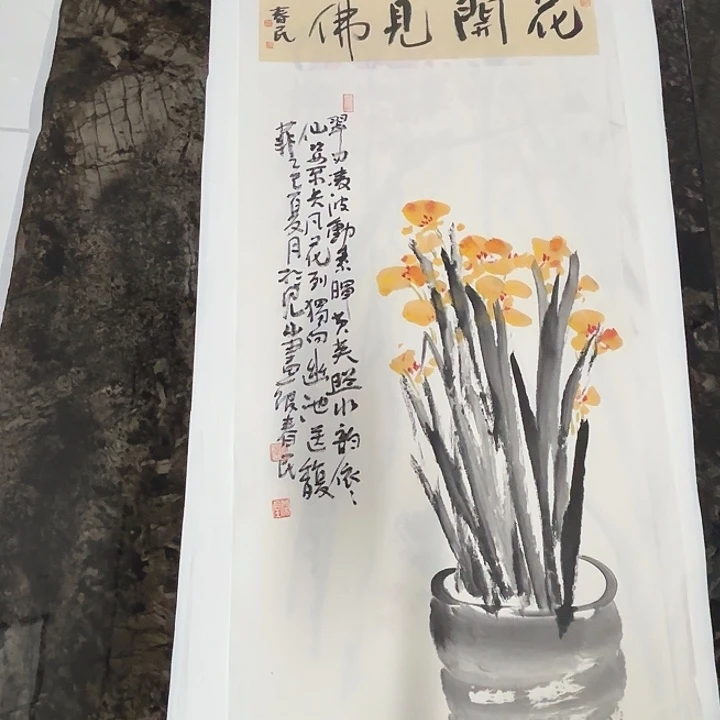 花開見佛
春民
翠刃凌波動素暉黃英照水韵依々
仙姿不与凡花列獨向幽池送馥
菲乙巳夏月於見山畫春民